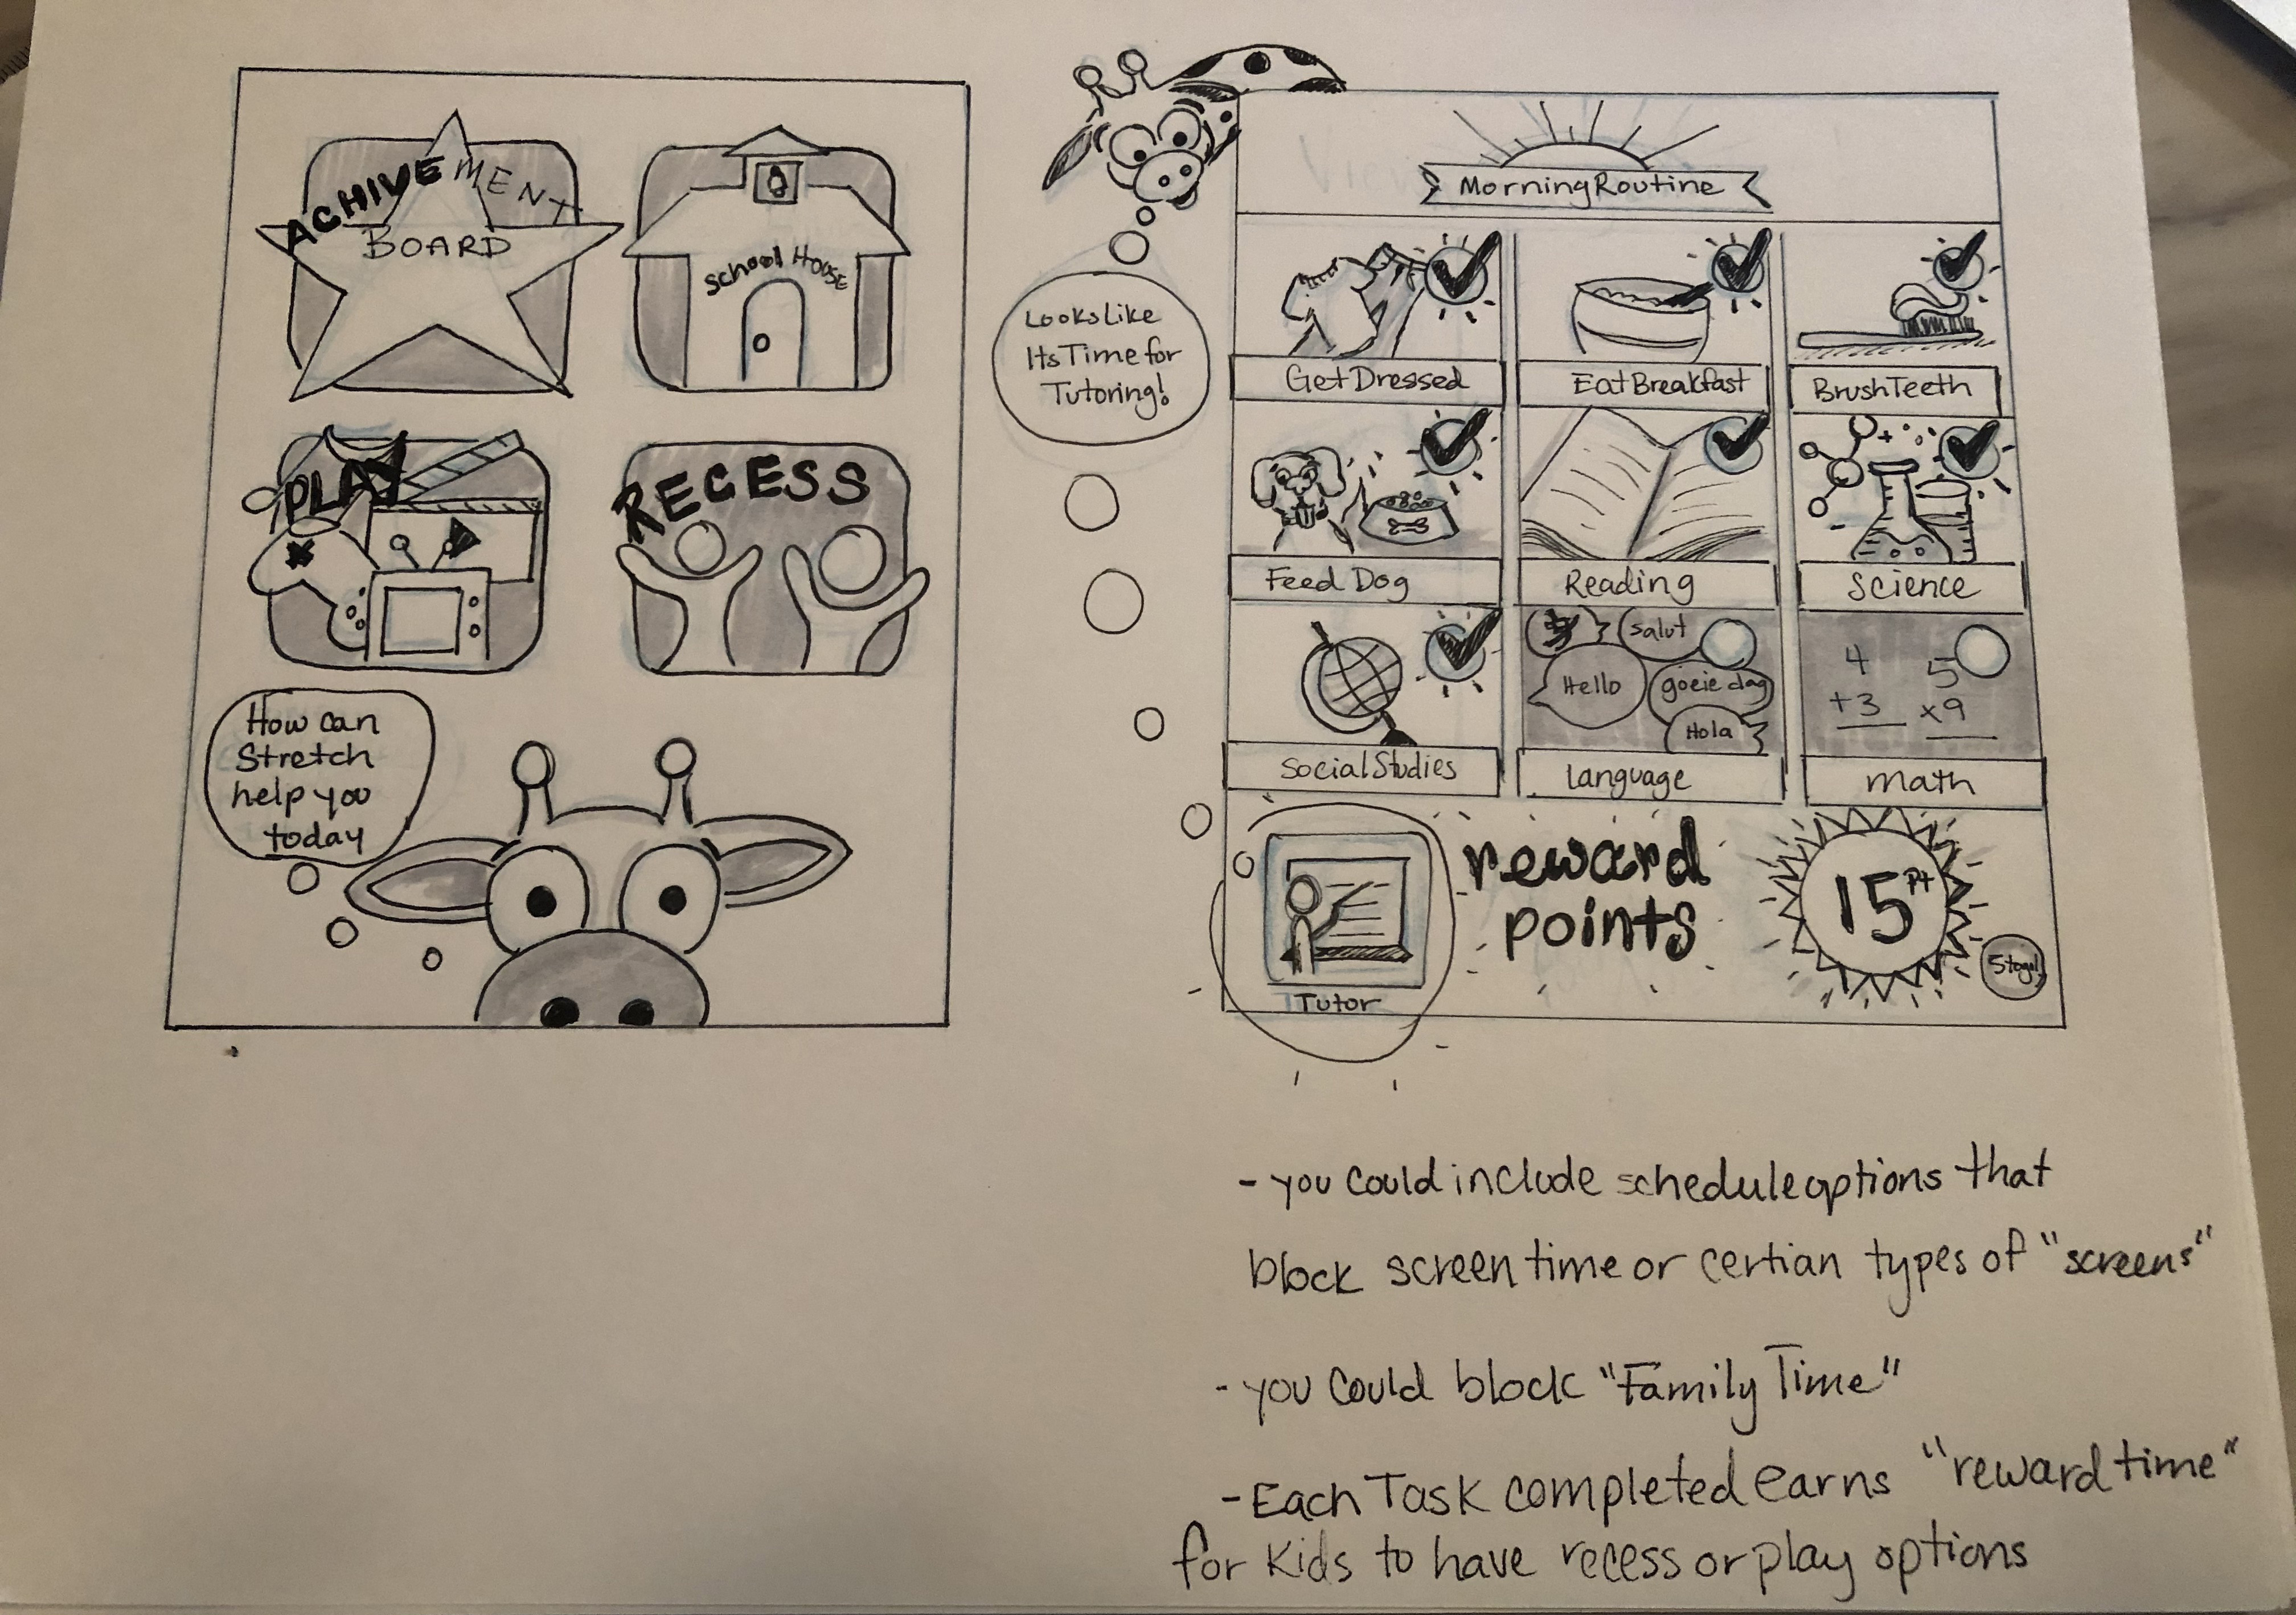 ACHIVEMENT
BOARD
School House
PLAY
RECESS
How can
Stretch
help you
today
Looks Like
Its Time for
Tutoring!
Morning Routine
Get Dressed
Eat Breakfast
Brush Teeth
Feed Dog
Reading
Science
salut
Hello
goeie dag
Hola
4
+3
5
x9
Social Studies
Language
math
Tutor
reward
points
15 Pt
- you could include schedule options that
block screen time or certian types of "screens"
- you could block "Family Time"
- Each Task completed earns "reward time"
for Kids to have recess or play options